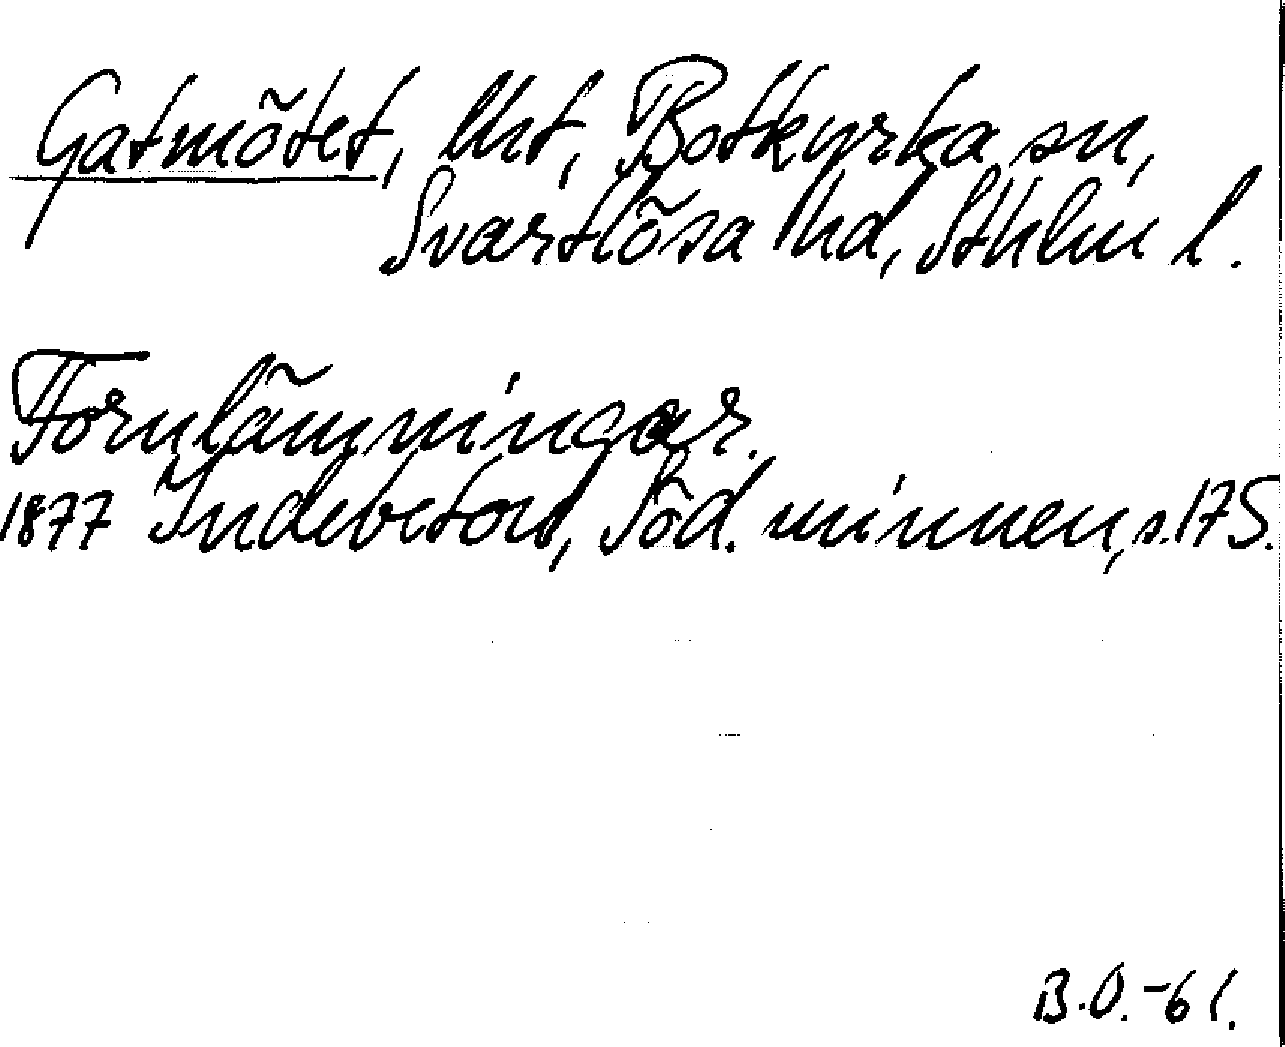 Gatmötet, lht, Botkyrka sn,
Svartlösa hd, Sthlm l.
Fornlämningar.
1877 Indebetou, Söd. minnen, s. 175.
B.O.-61.